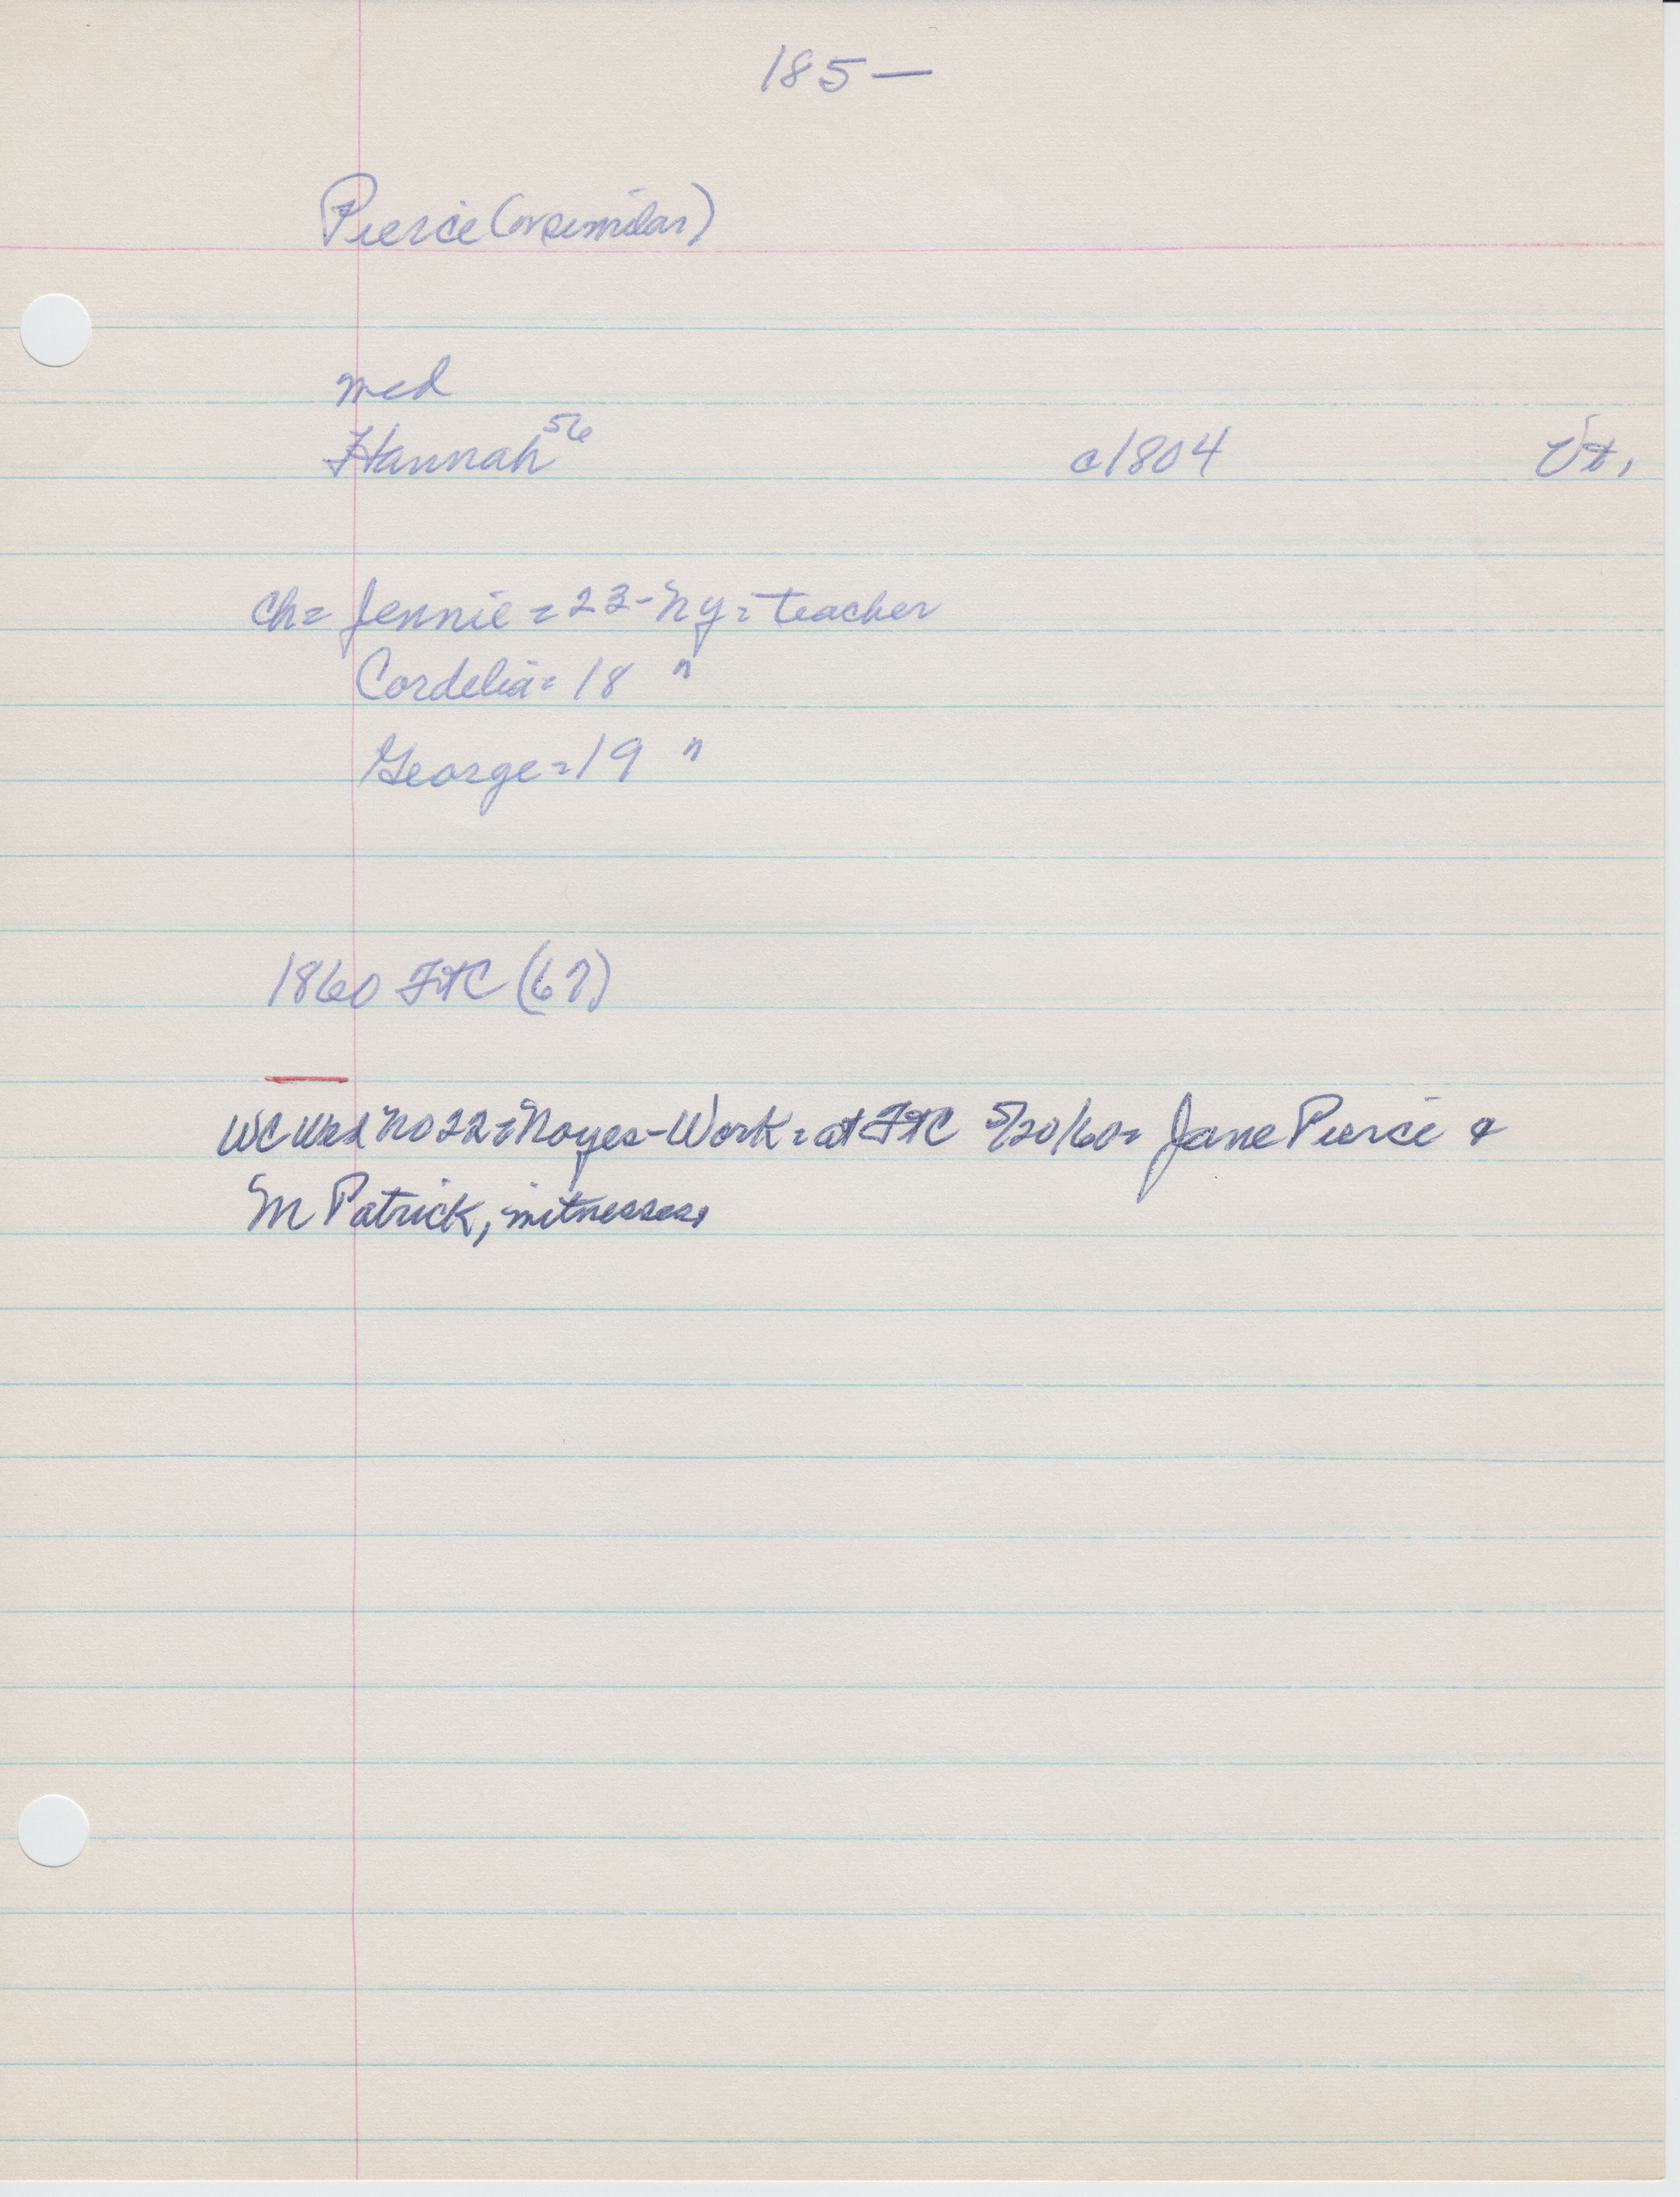 185—
Pierce (or similar)
md
Hannah 56 c1804 Vt.
ch= Jennie = 23 - Ny = teacher
Cordelia = 18 "
George = 19 "
1860 FtC (67)
WC Wed No 22 = Noyes - Work = at FtC 5/20/60 = Jane Pierce &
M Patrick, witnesses.